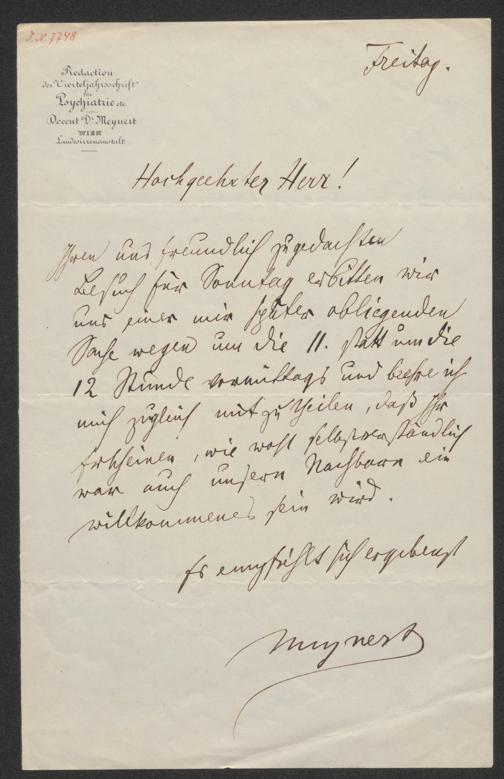 J.N. 7748
Redaction
der Vierteljahrsschrift
für
Psychiatrie etc.
Docent Dr. Meynert
WIEN
Landesirrenanstalt.
Freitag.
Hochgeehrter Herr!
Ihren uns freundlich zugedachten
Besuch für Sonntag erbitten wir
uns einer mir später obliegenden
Sache wegen um die 11. statt um die
12 Stunde vormittags und beehre ich
mich zugleich mitzutheilen, daß Ihr
Erscheinen, wie wohl selbstverständlich
war auch unsern Nachbarn ein
willkommenes sein wird.
Es empfiehlt sich ergebenst
Meynert